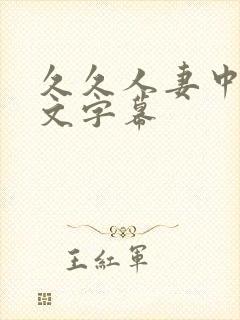 久久人妻中
文字幕
王紅軍